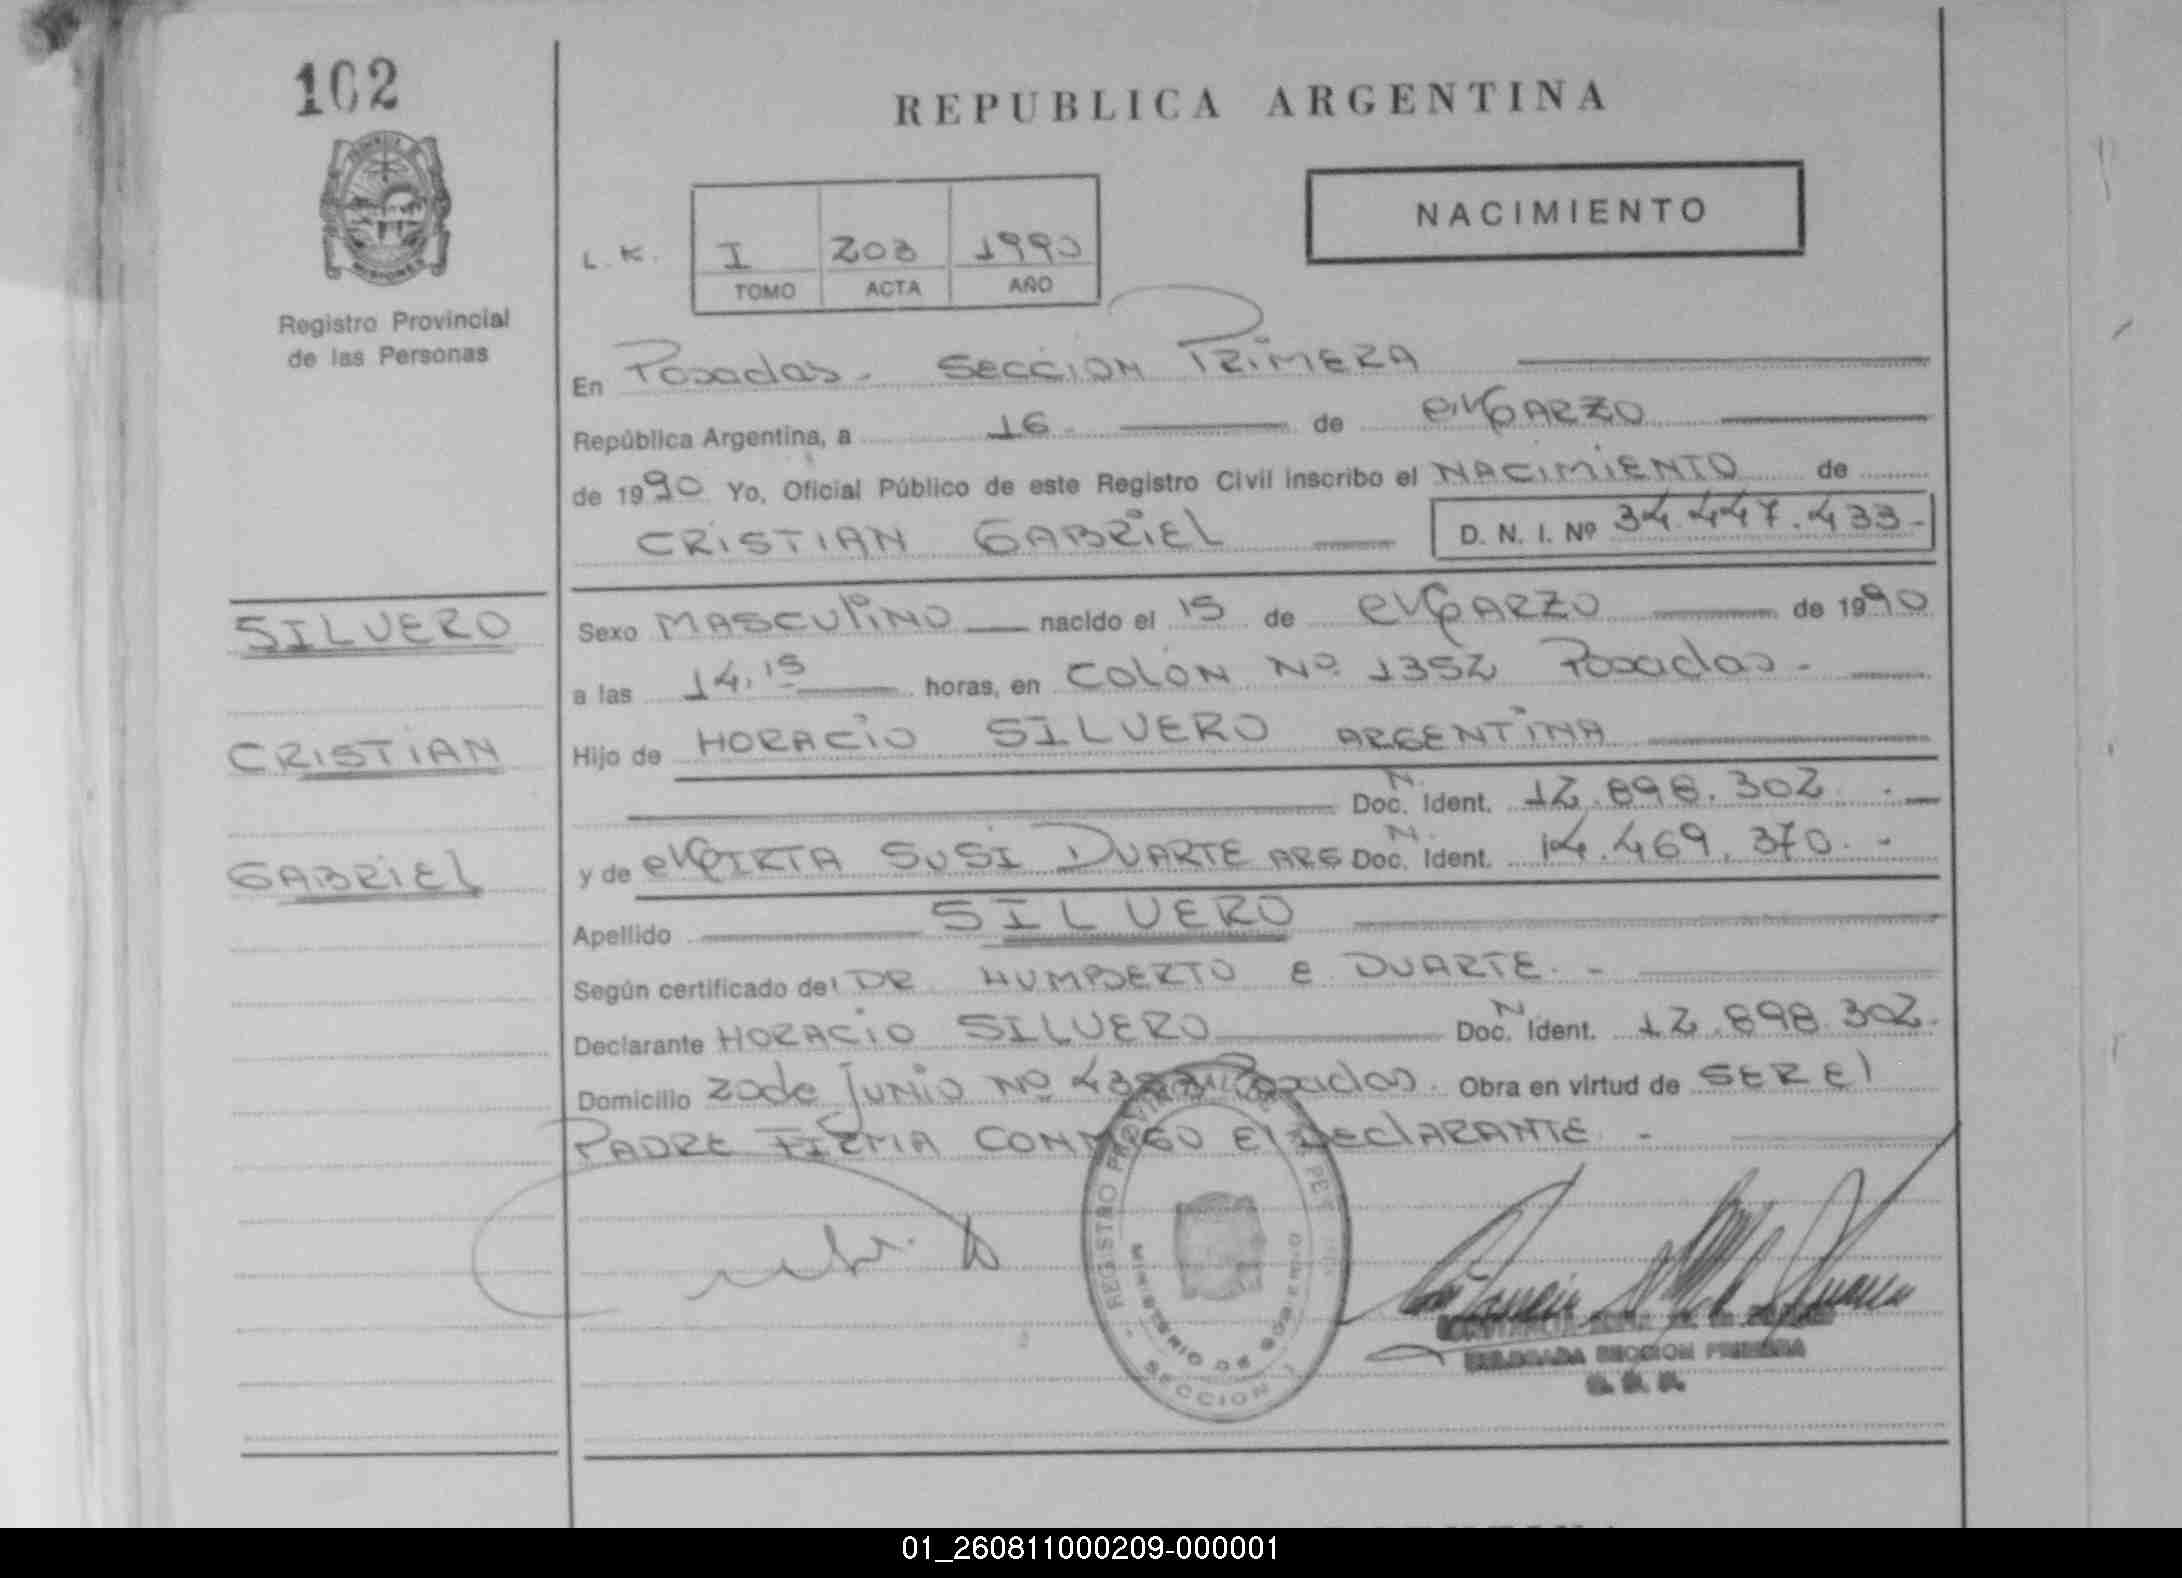 102
REPUBLICA ARGENTINA
NACIMIENTO
L. K. I 203 1990
TOMO ACTA AÑO
Registro Provincial
de las Personas
MISIONES
En Posadas - SECCION PRIMERA
República Argentina, a 16 de MARZO
de 1990 Yo, Oficial Público de este Registro Civil inscribo el NACIMIENTO de
CRISTIAN GABRIEL D. N. I. Nº 34.447.433-
SILVERO
CRISTIAN
GABRIEL
Sexo MASCULINO nacido el 15 de MARZO de 1990
a las 14.15 horas, en COLON Nº 1352 Posadas -
Hijo de HORACIO SILVERO ARGENTINA
N. Doc. Ident. 12.898.302 . -
y de MIRTA SUSI DUARTE ARG N. Doc. Ident. 14.469.370. -
Apellido SILVERO
Según certificado del DR HUMBERTO E DUARTE. -
Declarante HORACIO SILVERO N Doc. Ident. 12.898.302.
Domicilio 20 de Junio Nº Posadas. Obra en virtud de SER El
PADRE FIRMA CONMIGO El DEClARANTE -
REGISTRO
MINISTERIO DE GOBIERNO
SECCION
DELEGADA SECCION PRIMERA
01_260811000209-000001